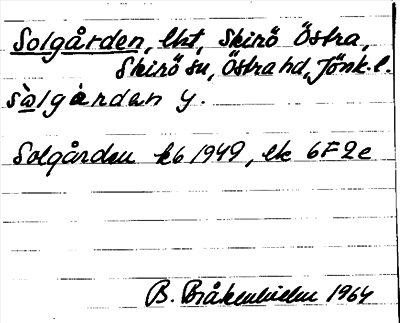 Solgården, lht, Skirö Östra,
Skirö sn, Östra hd, Jönk. l.
sàlgàrdan y.
Solgården k6 1949, ek 6F2e
B. Bråkenhielm 1964